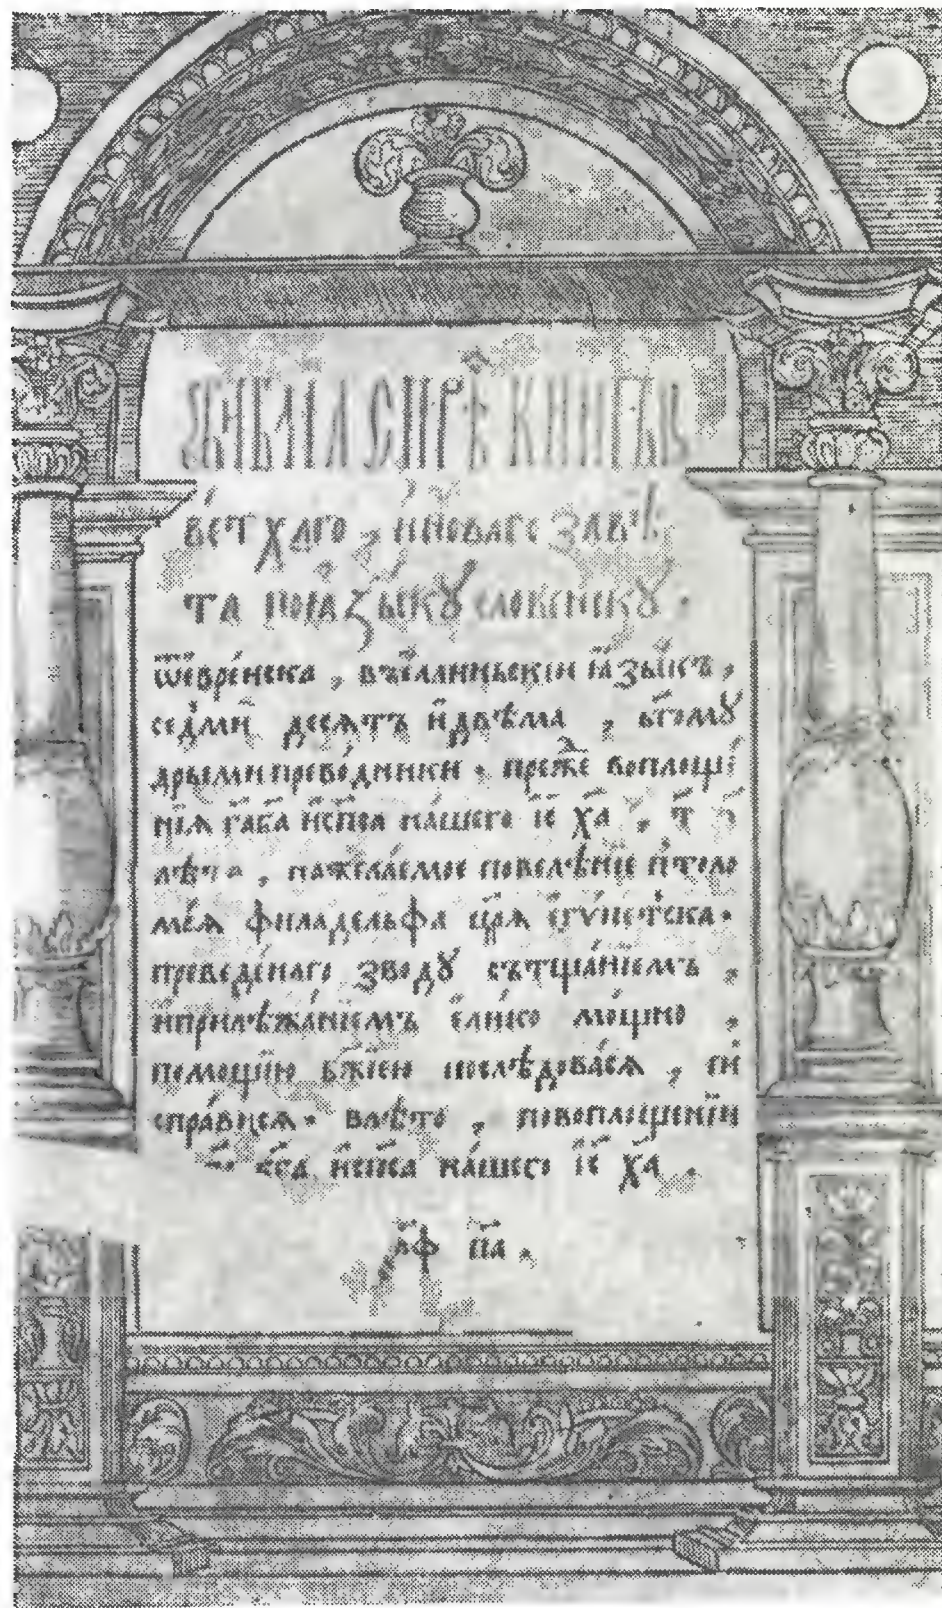 БИБЛІА СИРѢ КНИГЫ
ве́тхаго , и҆новаго завѣ
та поꙗзы́кꙋ словенскꙋ .
ѿе҆вре́йска , въе҆ллиньскїи ꙗ҆зы́къ ,
се́дмию десѧтъ и҆двѣма , бг҃омꙋ
дрыми преводники . преже воплоще́
нїѧ га҃ба и҆сп҃са на́шего і҃с х҃а ,
лѣт , пожела́емое повелѣнїе птоло
ме́ѧ филаде́льфа цр҃ѧ є҆гѵ́петска .
преведе́наго зводꙋ сътща́нїемъ ,
и҆прилѣжа́нїемъ є҆ли́ко мо́щно ,
помощїю бж҃їею послѣдова́сѧ , и҆
спра́висѧ . влѣто , повоплоще́нїи
и҆сп҃са на́шего і҃с х҃а .
҂аф п҃а .